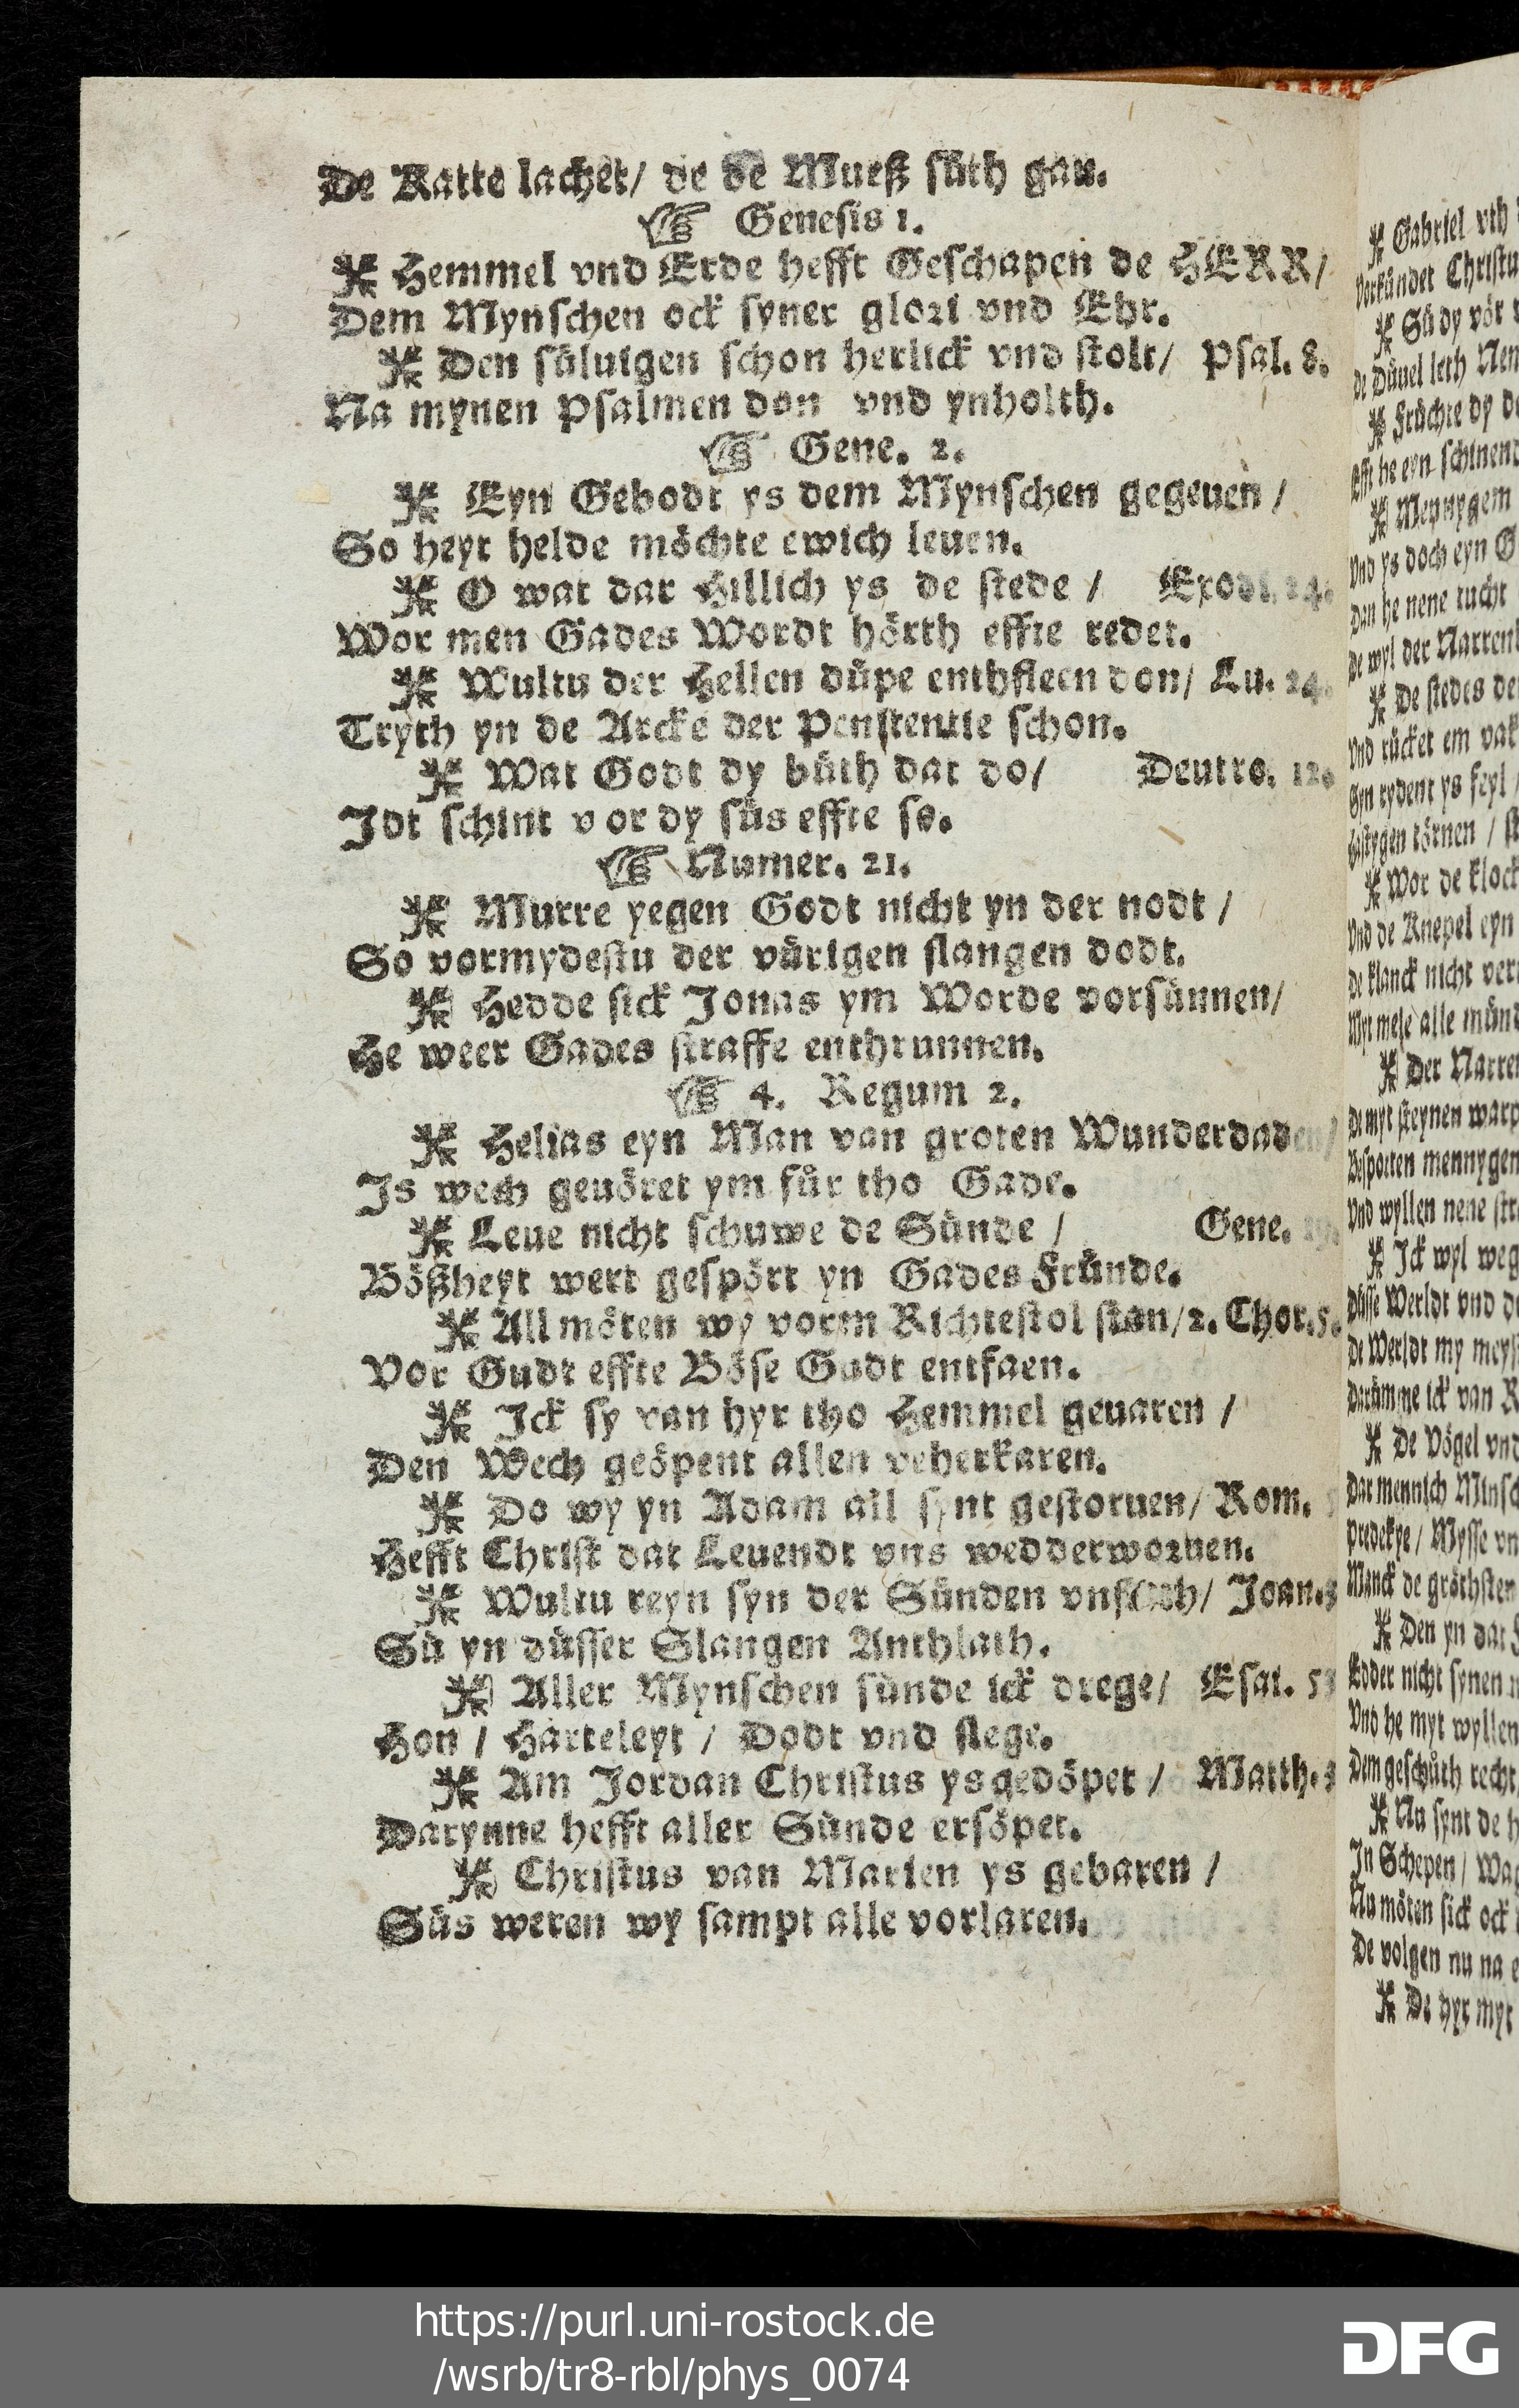 De Katte lachet/ de de Mueß süth gan.
☞ Genesis 1.
Hemmel vnd Erde hefft Geschapen de HERR/
Dem Mynschen ock syner glori vnd Ehr.
Den süluigen schon herlick vnd stolt/ Psal. 8.
Na mynen Psalmen don vnd ynholth.
☞ Gene. 2.
Eyn Gebodt ys dem Mynschen gegeuen /
So heyt helde möchte ewich leuen.
O wat dar Hillich ys de stede / Exodi. 24.
Wor men Gades Wordt hörth effte redet.
Wultu der Hellen düpe enthfleen don/ Lu. 24.
Tryth yn de Arcke der Penstentie schon.
Wat Godt dy büth dat do/ Deutro. 12.
Idt schint vor dy süs effte so.
☞ Numer. 21.
Murre yegen Godt nicht yn der nodt /
So vormydestu der vürigen slangen dodt.
Hedde sick Jonas ym Worde vorsünnen/
He weer Gades straffe enthrunnen.
☞ 4. Regum 2.
Helias eyn Man van groten Wunderdaden/
Is wech geuöret ym für tho Gade.
Leue nicht schuwe de Sünde / Gene.
Bößheyt wert gespört yn Gades Fründe.
All möten wy vorm Richtestol stan/2. Chor.5.
Vor Gudt effte Böse Gudt entfaen.
Ick sy van hyr tho Hemmel geuaren /
Den Wech geöpent allen veherkaren.
Do wy yn Adam all synt gestoruen/ Rom.
Hefft Christ dat Leuendt vns wedderworuen.
Wultu reyn syn der Sünden vnflath/ Joan.3
Sü yn düsser Slangen Anthlath.
Aller Mynschen sünde ick drege/ Esai. 53
Hon / Harteleyt / Dodt vnd slege.
Am Jordan Christus ys gedöpet / Matth.3
Darynne hefft aller Sünde ersöpet.
Christus van Marien ys gebaren /
Süs weren wy sampt alle vorlaren.
Gabriel vth
Vorkündet Christu
Sü dy vör
de Düuel leth
Früchte dy
Efft he eyn schinend
Mennygem
Vnd ys doch eyn G
Dan he nene tucht
De wyl der Narren
De stedes de
Vnd rücket em vak
Hastygen törnen /
Wor de klock
Vnd de Knepel eyn
De klanck nicht
Myt meje alle münd
Der Narren
De myt steynen warp
Bespotten mennygen
Vnd wyllen nene str
Ick wyl weg
Düsse Werldt vnd de
De Werldt my
Darümme ick van
De Vögel vnd
Dat mennich Minsc
Predekye / Mysse vn
Manck de gröthsten
Den yn dat
Edder nicht synen
Vnd he myt wyllen
Dem geschüth recht
Nu synt de h
In Schepen / Wag
Nu möten sick ock
De volgen nu na e
De hyr myt
https://purl.uni-rostock.de
/wsrb/tr8-rbl/phys_0074
DFG